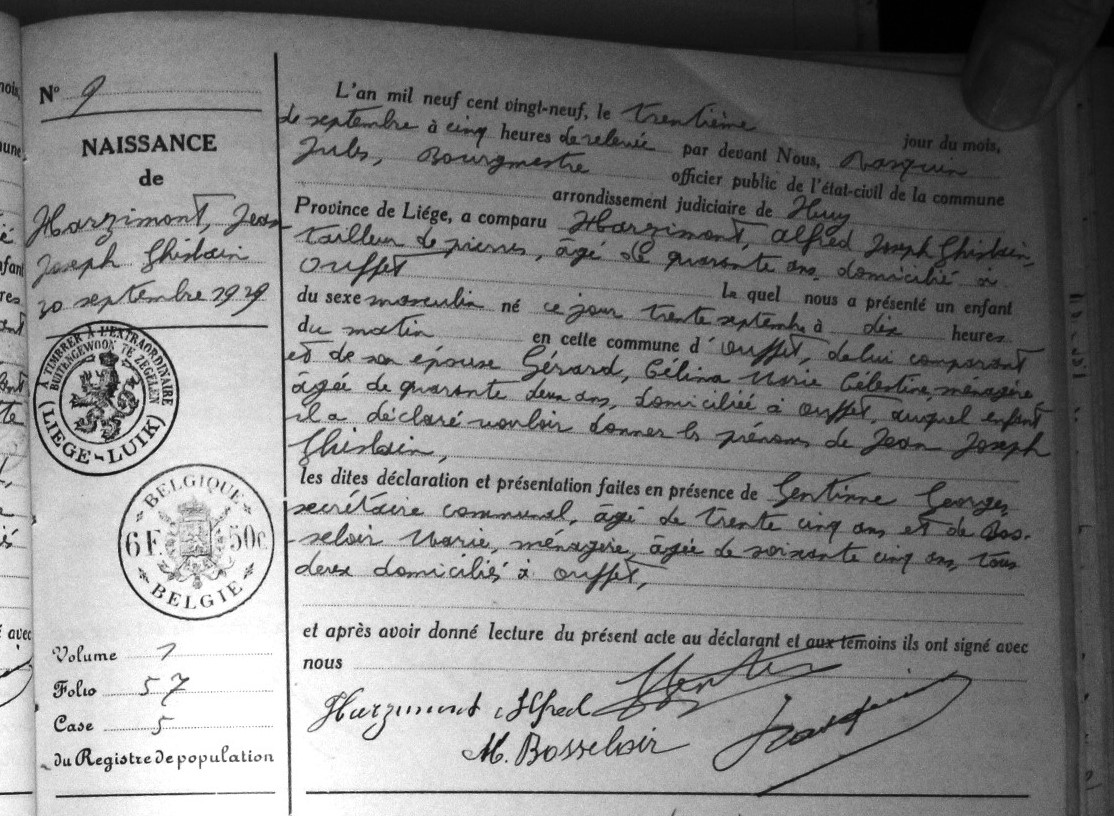 N° 9
NAISSANCE
de
Harzimont, Jean
Joseph Ghislain
30 septembre 1929
A TIMBRER A L'EXTRAORDINAIRE
BUITENGEWOON TE ZEGELEN
(LIEGE-LUIK)
BELGIQUE
6 F. 50c
BELGIE
Volume 1
Folio 57
Case 5
du Registre de population
L'an mil neuf cent vingt-neuf, le trentième jour du mois,
de septembre à cinq heures de relevée par devant Nous, Rasquin
Jules, Bourgmestre officier public de l'état-civil de la commune
arrondissement judiciaire de Huy
Province de Liége, a comparu Harzimont, Alfred Joseph Ghislain,
tailleur de pierres, âgé de quarante ans domicilié à
Ouffet Le quel nous a présenté un enfant
du sexe masculin né ce jour trente septembre à dix heures
du matin en cette commune d'Ouffet, de lui comparant
et de son épouse Gérard, Célina Marie Célestine, ménagère
âgée de quarante deux ans, domiciliée à Ouffet, auquel enfant
il a déclaré vouloir donner les prénoms de Jean Joseph
Ghislain,
les dites déclaration et présentation faites en présence de Gentinne Georges
secrétaire communal, âgé de trente cinq ans et de Bos-
seloir Marie, ménagère, âgée de soixante cinq ans, tous
deux domiciliés à Ouffet,
et après avoir donné lecture du présent acte au déclarant et aux témoins ils ont signé avec
nous
Harzimont Alfred
M. Bosseloir